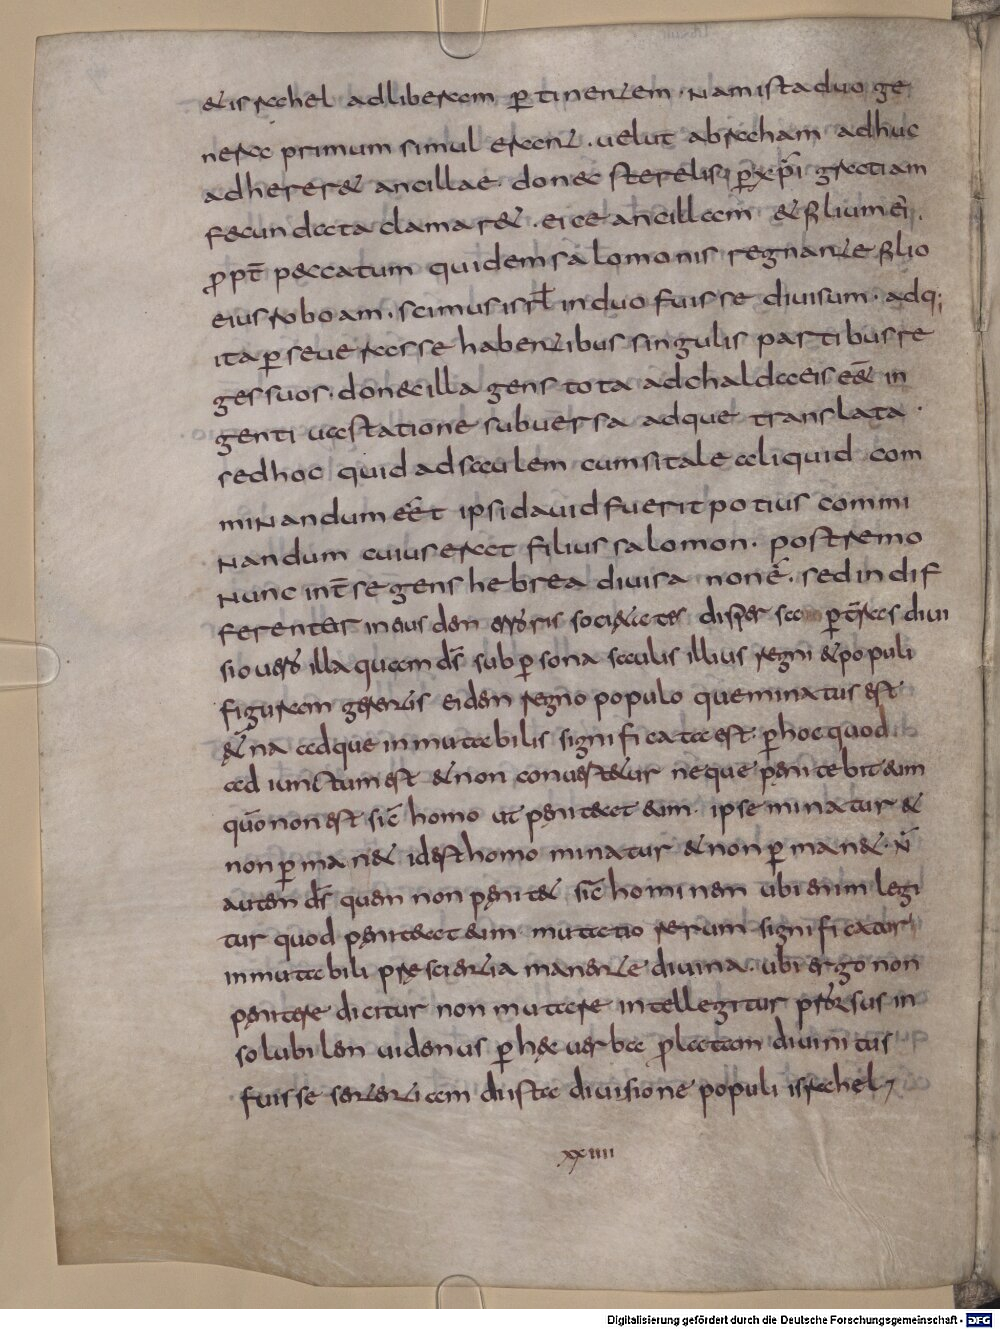 & israhel ad liberam ꝑtinentem · Nam ista duo ge
nera primum simul erant · uelut abraham adhuc
adhereret ancillae · donec sterelis ꝑ xp̄i gratiam
fecundata clamaret · eice ancillam & filium ei ·
ꝓpt̄ peccatum quidem salomonis regnante filio
eius roboam · scimus isrl̄ in duo fuisse diuisum · adq;
ita ꝑseuerasse habentibus singulis partibus re
ges suos · donec illa gens tota ad chaldaeis eē& in
genti uastatione subuersa adque translata ·
sed hoc quid ad saulem cum si tale aliquid com
minandum e&́t ipsi dauid fuerit potius commi
nandum cuius erat filius salomon · postremo
Nunc int̄ se gens hebrea diuisa non ē · sed indif
ferenter in eiusdem erroris societate disper sa ꝑ t̄ras diui
sio uero illa quam d̄s sub ꝑsona saulis illius regni & populi
figuram gerentis eidem regno populo que minatus est
&erna adque inmutabilis significata est · ꝑ hoc quod
ad iunctum est & non conuertetur neque penitebit eum
qūo non est sic̄ homo ut peniteat eum · ipse minatur &
non ꝑman& id est homo minatur & non ꝑman& · N̄
autem d̄s quem non penit& sic̄ hominem ubi enim legi
tur quod peniteat eum · mutatio rerum significatur
inmutabili prescientia manente diuina · ubi ergo non
penitere dicitur non mutare intellegitur prorsus in
solubilem uidemus ꝑ hec uerba ꝓlatam diuinitus
fuisse sententiam de ista diuisione populi israhel
xxiiii
Digitalisierung gefördert durch die Deutsche Forschungsgemeinschaft - DFG